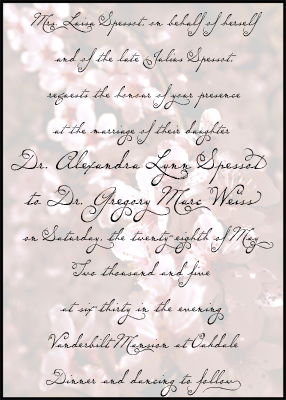 Mrs. Luisa Spessot, on behalf of herself
and of the late Julius Spessot,
requests the honour of your presence
at the marriage of their daughter
Dr. Alexandra Lynn Spessot
to Dr. Gregory Marc Weiss
on Saturday, the twenty-eighth of May
Two thousand and five
at six-thirty in the evening
Vanderbilt Mansion at Oakdale
Dinner and dancing to follow